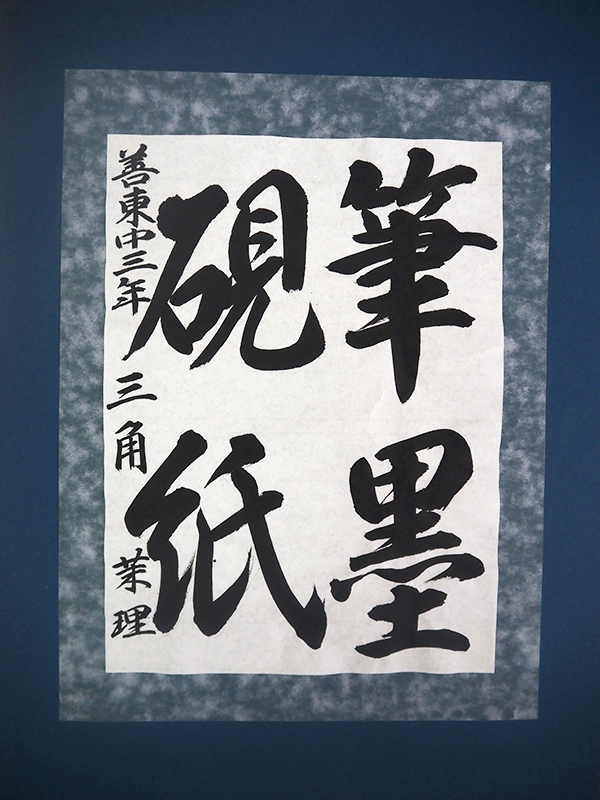 筆墨
硯紙
善東中三年 三角 茉理